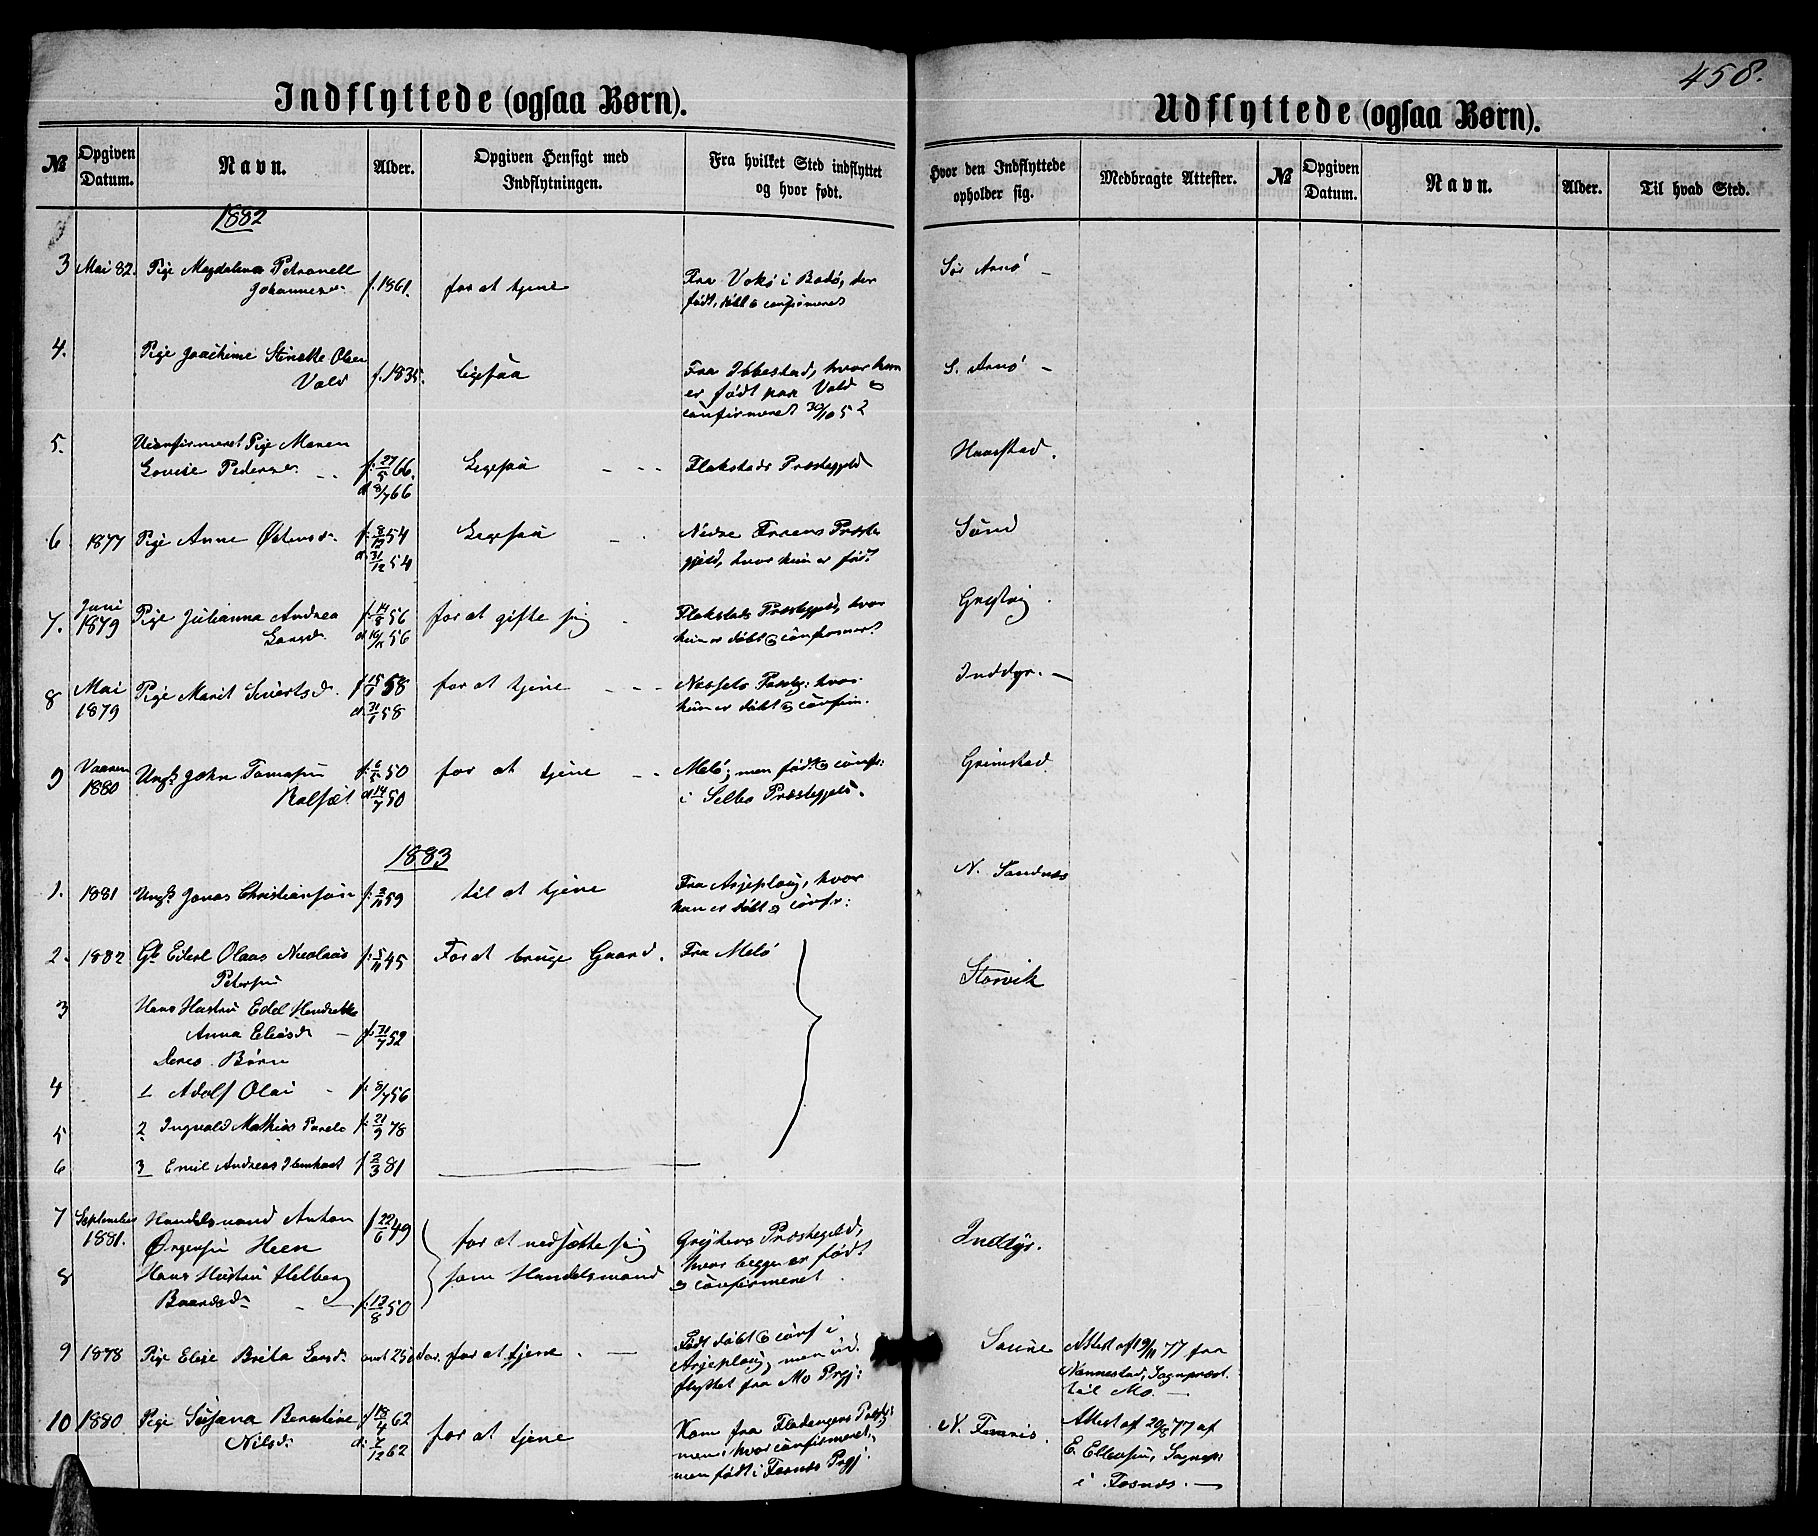 458.
Indflyttede (ogsaa Børn).
Udflyttede (ogsaa Børn).
№ Opgiven Datum. Navn. Alder. Opgiven Hensigt med Indflytningen. Fra hvilket Sted indflyttet og hvor født. Hvor den Indflyttede opholder sig. Medbragte Attester. № Opgiven Datum. Navn. Alder. Til hvad Sted.
1882
3 Mai 82. Pige Magdalena Petronell f. 1861. for at tjene Fra i Bodø, der Sør Arnø
født, døbt & confirmeret
4. Pige Joachime Olsen
Vold f. 1835. ligesaa Fra Ibbestad, hvor hun S. Arnø
er født paa Vold &
confirmeret 30/10 52
5. Uconfirmeret Pige Maren
Lovise Peders f: 27/5 66. Ligesaa Flakstads Præstegjeld
d 8/7 66
6 1877 Pige Anne Østensd. 54 Ligesaa Nedre Præste- Sund
d 31/12 54 gjeld, hvor hun er født
7. Juni 1879 Pige Julianna Andrea f. 14/8 56 for at gifte sig Flakstads Præstegjeld, hvor
Larsd. 56 hun er døbt & confirmeret
8 Mai 1879 Pige Marit Siverts d. 58 for at tjene Næssets Præsteg: hvor Inddyr.
d. 58 hun er døbt & confirm.
9 Vaaren 1880 Ungk. John Tomassen 50 for at tjene Melø, men født & confr: Grimstad
d 14/7 50 i Selbo Præstegjeld.
1883
1. 1881 Ungk. Jonas Christiansøn f: 2/11 59 til at tjene Fra Arjeplaug, hvor N. Sandnæs
han er døbt & confr:
2. 1882 Gk. Eierl Olaus Nicolaus f. 5/11 45 For at bruge Gaard. Fra Melø Storvik
Petersen
3 Hans Hustru Edel Hendrikke
Anna Eliasd. f. 31/7 52
Deres Børn
4 1 Adolf Olai f. 8/7 56
5 2 Ingvald Mathias f. 21/9 78
6 3 Emil Andreas f 2/3 81
7 September 1881. Handelsmand Anton f 22/6 49 for at nedsætte sig Grytens Præstegjeld, Inddyr.
Ørgensen Heen hvor begge er født
8 Hans Hustru som Handelsmand & confirmeret
Baardsd. f. 12/8 50
9 1878 Pige Elise Brita Larsd. omt 25 Aar. for at tjene Født døbt & conf i Attest af 19/11 77 fra
Arjeplaug, men ud- Nannestad, Sognepræst
flyttet fra Mo Prgj: til Mo.
10 1880 Pige Susana Berntine f 18/4 62 for at tjene Kom fra Attest af 20/8 77 af
Nilsd. d: 7/12 62 men hvor confirmeret, E. Ellersen, Sognepr
men født i Fosnæs Prgj: i Fosnæs.